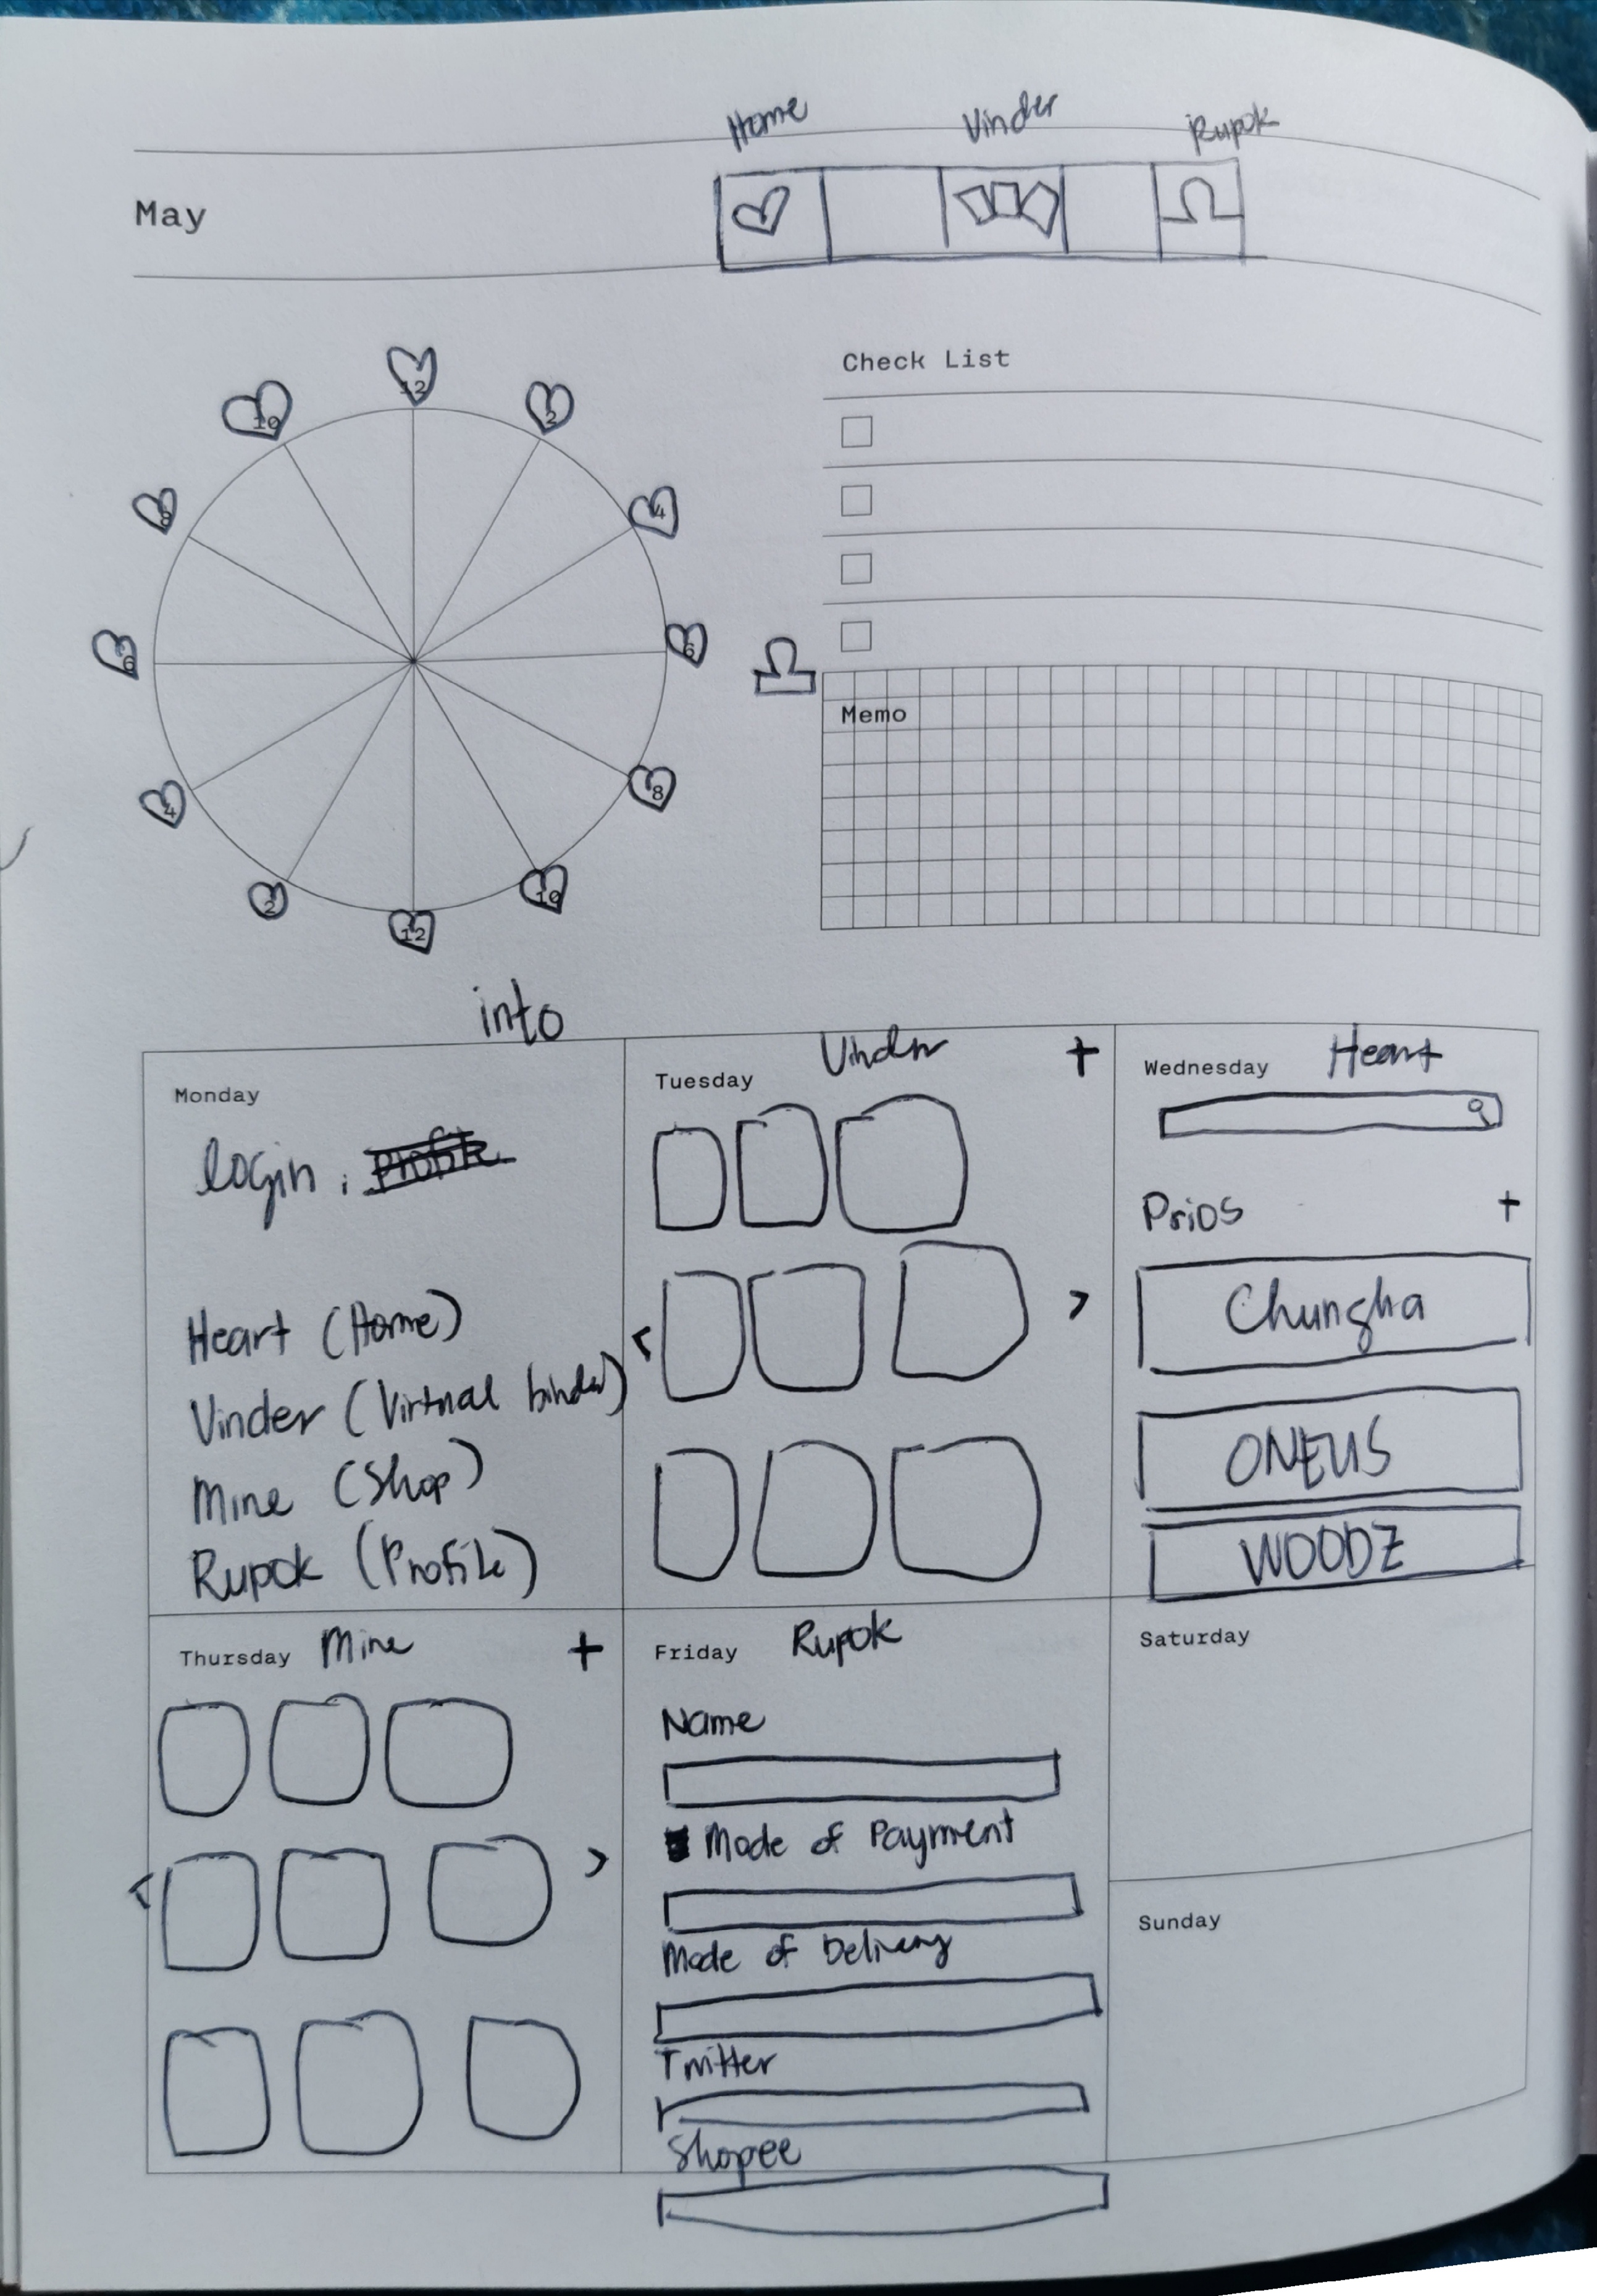 Home Vinder Rupok
May
Check List
12
2
4
6
8
10
12
2
4
6
8
10
Memo
into
Monday
login,
Heart (Home)
Vinder (Virtual binder)
Mine (Shop)
Rupok (Profile)
Tuesday Vinder +
< >
Wednesday Heart
Prios +
Chungha
ONEUS
WOODZ
Thursday Mine +
< >
Friday Rupok
Name
Mode of Payment
Mode of Delivery
Twitter
Shopee
Saturday
Sunday